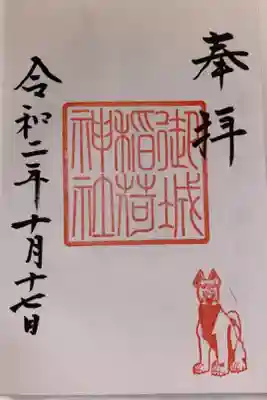 奉拝
御城
稲荷
神社
令和二年十月十七日